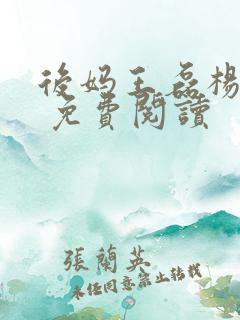 後妈王磊楊
免費閱讀
張蘭英
未经同意禁止转载